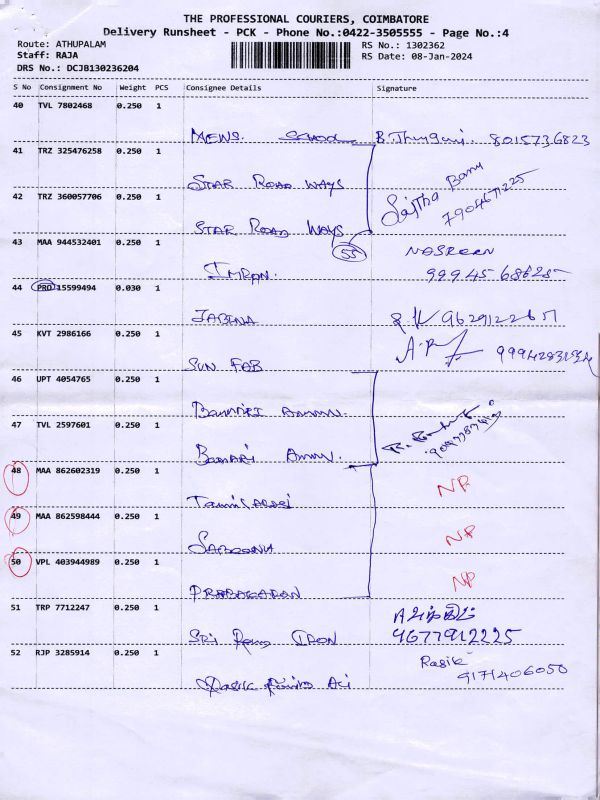 THE PROFESSIONAL COURIERS, COIMBATORE
Delivery Runsheet - PCK - Phone No.:0422-3505555 - Page No.:4
Route: ATHUPALAM RS No.: 1302362
Staff: RAJA RS Date: 08-Jan-2024
DRS No.: DCJB130236204
S No Consignment No Weight PCS Consignee Details Signature
40 TVL 7802468 0.250 1
MEWS. SCHOOL 8015736823
41 TRZ 325476258 0.250 1
STAR ROAD WAYS
Sajitha Banu
7904671225
42 TRZ 360057706 0.250 1
STAR ROAD WAYS
55
43 MAA 944532401 0.250 1 NASREEN
IMRAN.
44 PRO 15599494 0.030 1
JABINA
45 KVT 2986166 0.250 1
SUN FAB
46 UPT 4054765 0.250 1
47 TVL 2597601 0.250 1
48 MAA 862602319 0.250 1 NP
49 MAA 862598444 0.250 1 NP
50 VPL 403944989 0.250 1 NP
PRABAGARAN
51 TRP 7712247 0.250 1
SRI IRON 9677912225
52 RJP 3285914 0.250 1 Rasik
9171406050